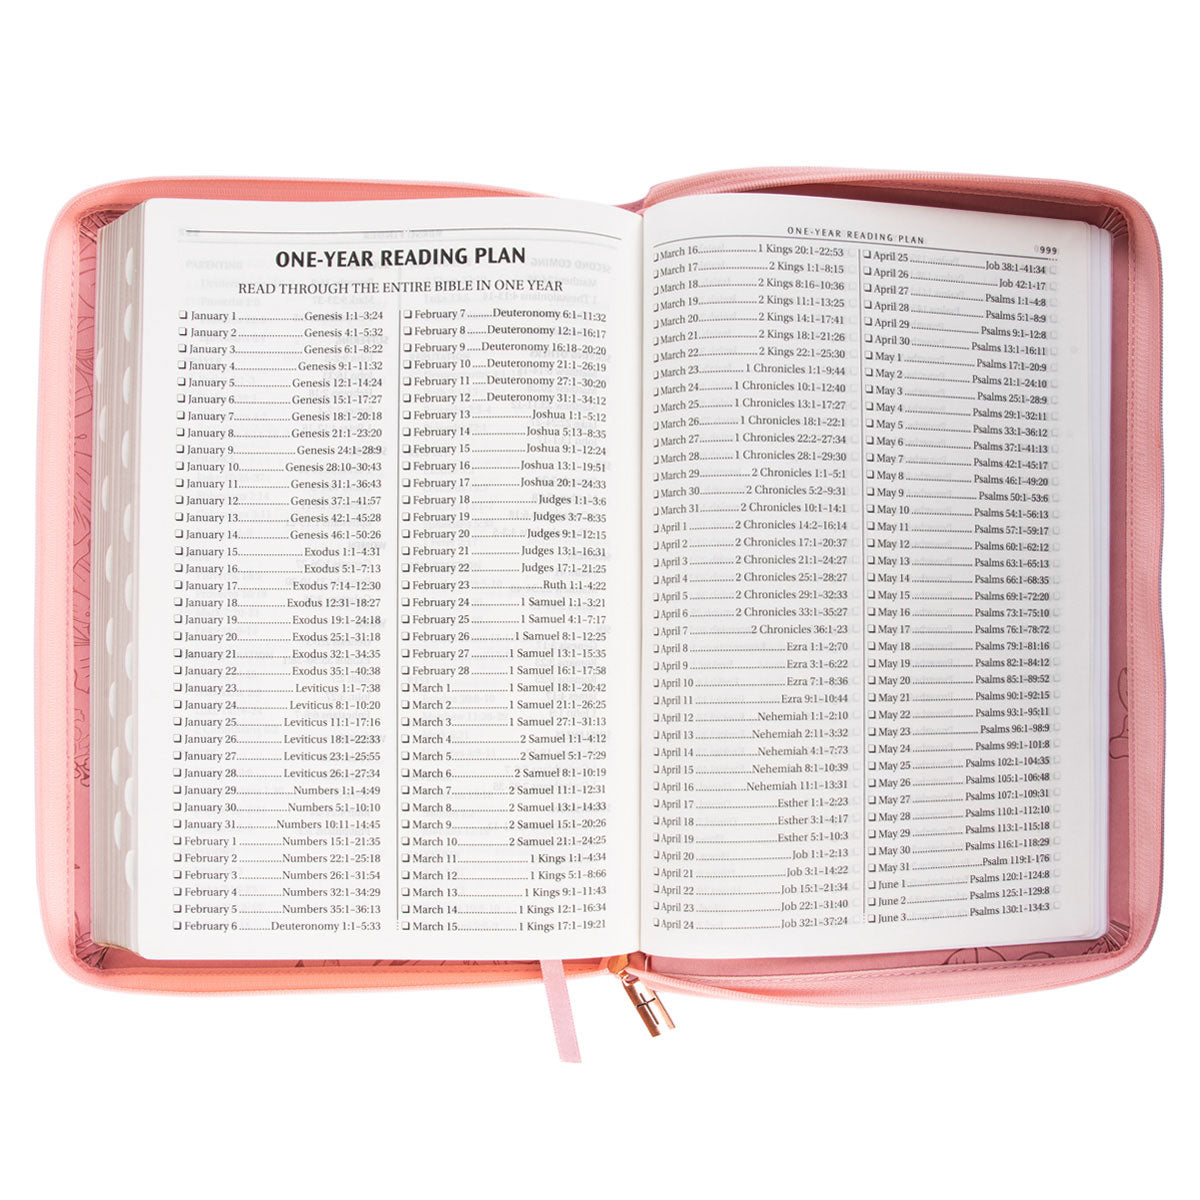 ONE-YEAR READING PLAN
READ THROUGH THE ENTIRE BIBLE IN ONE YEAR
❏ January 1 Genesis 1:1–3:24
❏ January 2 Genesis 4:1–5:32
❏ January 3 Genesis 6:1–8:22
❏ January 4 Genesis 9:1–11:32
❏ January 5 Genesis 12:1–14:24
❏ January 6 Genesis 15:1–17:27
❏ January 7 Genesis 18:1–20:18
❏ January 8 Genesis 21:1–23:20
❏ January 9 Genesis 24:1–28:9
❏ January 10 Genesis 28:10–30:43
❏ January 11 Genesis 31:1–36:43
❏ January 12 Genesis 37:1–41:57
❏ January 13 Genesis 42:1–45:28
❏ January 14 Genesis 46:1–50:26
❏ January 15 Exodus 1:1–4:31
❏ January 16 Exodus 5:1–7:13
❏ January 17 Exodus 7:14–12:30
❏ January 18 Exodus 12:31–18:27
❏ January 19 Exodus 19:1–24:18
❏ January 20 Exodus 25:1–31:18
❏ January 21 Exodus 32:1–34:35
❏ January 22 Exodus 35:1–40:38
❏ January 23 Leviticus 1:1–7:38
❏ January 24 Leviticus 8:1–10:20
❏ January 25 Leviticus 11:1–17:16
❏ January 26 Leviticus 18:1–22:33
❏ January 27 Leviticus 23:1–25:55
❏ January 28 Leviticus 26:1–27:34
❏ January 29 Numbers 1:1–4:49
❏ January 30 Numbers 5:1–10:10
❏ January 31 Numbers 10:11–14:45
❏ February 1 Numbers 15:1–21:35
❏ February 2 Numbers 22:1–25:18
❏ February 3 Numbers 26:1–31:54
❏ February 4 Numbers 32:1–34:29
❏ February 5 Numbers 35:1–36:13
❏ February 6 Deuteronomy 1:1–5:33
❏ February 7 Deuteronomy 6:1–11:32
❏ February 8 Deuteronomy 12:1–16:17
❏ February 9 Deuteronomy 16:18–20:20
❏ February 10 Deuteronomy 21:1–26:19
❏ February 11 Deuteronomy 27:1–30:20
❏ February 12 Deuteronomy 31:1–34:12
❏ February 13 Joshua 1:1–5:12
❏ February 14 Joshua 5:13–8:35
❏ February 15 Joshua 9:1–12:24
❏ February 16 Joshua 13:1–19:51
❏ February 17 Joshua 20:1–24:33
❏ February 18 Judges 1:1–3:6
❏ February 19 Judges 3:7–8:35
❏ February 20 Judges 9:1–12:15
❏ February 21 Judges 13:1–16:31
❏ February 22 Judges 17:1–21:25
❏ February 23 Ruth 1:1–4:22
❏ February 24 1 Samuel 1:1–3:21
❏ February 25 1 Samuel 4:1–7:17
❏ February 26 1 Samuel 8:1–12:25
❏ February 27 1 Samuel 13:1–15:35
❏ February 28 1 Samuel 16:1–17:58
❏ March 1 1 Samuel 18:1–20:42
❏ March 2 1 Samuel 21:1–26:25
❏ March 3 1 Samuel 27:1–31:13
❏ March 4 2 Samuel 1:1–4:12
❏ March 5 2 Samuel 5:1–7:29
❏ March 6 2 Samuel 8:1–10:19
❏ March 7 2 Samuel 11:1–12:31
❏ March 8 2 Samuel 13:1–14:33
❏ March 9 2 Samuel 15:1–20:26
❏ March 10 2 Samuel 21:1–24:25
❏ March 11 1 Kings 1:1–4:34
❏ March 12 1 Kings 5:1–8:66
❏ March 13 1 Kings 9:1–11:43
❏ March 14 1 Kings 12:1–16:34
❏ March 15 1 Kings 17:1–19:21
ONE-YEAR READING PLAN 999
❏ March 16 1 Kings 20:1–22:53
❏ March 17 2 Kings 1:1–8:15
❏ March 18 2 Kings 8:16–10:36
❏ March 19 2 Kings 11:1–13:25
❏ March 20 2 Kings 14:1–17:41
❏ March 21 2 Kings 18:1–21:26
❏ March 22 2 Kings 22:1–25:30
❏ March 23 1 Chronicles 1:1–9:44
❏ March 24 1 Chronicles 10:1–12:40
❏ March 25 1 Chronicles 13:1–17:27
❏ March 26 1 Chronicles 18:1–22:1
❏ March 27 1 Chronicles 22:2–27:34
❏ March 28 1 Chronicles 28:1–29:30
❏ March 29 2 Chronicles 1:1–5:1
❏ March 30 2 Chronicles 5:2–9:31
❏ March 31 2 Chronicles 10:1–14:1
❏ April 1 2 Chronicles 14:2–16:14
❏ April 2 2 Chronicles 17:1–20:37
❏ April 3 2 Chronicles 21:1–24:27
❏ April 4 2 Chronicles 25:1–28:27
❏ April 5 2 Chronicles 29:1–32:33
❏ April 6 2 Chronicles 33:1–35:27
❏ April 7 2 Chronicles 36:1–23
❏ April 8 Ezra 1:1–2:70
❏ April 9 Ezra 3:1–6:22
❏ April 10 Ezra 7:1–8:36
❏ April 11 Ezra 9:1–10:44
❏ April 12 Nehemiah 1:1–2:10
❏ April 13 Nehemiah 2:11–3:32
❏ April 14 Nehemiah 4:1–7:73
❏ April 15 Nehemiah 8:1–10:39
❏ April 16 Nehemiah 11:1–13:31
❏ April 17 Esther 1:1–2:23
❏ April 18 Esther 3:1–4:17
❏ April 19 Esther 5:1–10:3
❏ April 20 Job 1:1–2:13
❏ April 21 Job 3:1–14:22
❏ April 22 Job 15:1–21:34
❏ April 23 Job 22:1–31:40
❏ April 24 Job 32:1–37:24
❏ April 25 Job 38:1–41:34
❏ April 26 Job 42:1–17
❏ April 27 Psalms 1:1–4:8
❏ April 28 Psalms 5:1–8:9
❏ April 29 Psalms 9:1–12:8
❏ April 30 Psalms 13:1–16:11
❏ May 1 Psalms 17:1–20:9
❏ May 2 Psalms 21:1–24:10
❏ May 3 Psalms 25:1–28:9
❏ May 4 Psalms 29:1–32:11
❏ May 5 Psalms 33:1–36:12
❏ May 6 Psalms 37:1–41:13
❏ May 7 Psalms 42:1–45:17
❏ May 8 Psalms 46:1–49:20
❏ May 9 Psalms 50:1–53:6
❏ May 10 Psalms 54:1–56:13
❏ May 11 Psalms 57:1–59:17
❏ May 12 Psalms 60:1–62:12
❏ May 13 Psalms 63:1–65:13
❏ May 14 Psalms 66:1–68:35
❏ May 15 Psalms 69:1–72:20
❏ May 16 Psalms 73:1–75:10
❏ May 17 Psalms 76:1–78:72
❏ May 18 Psalms 79:1–81:16
❏ May 19 Psalms 82:1–84:12
❏ May 20 Psalms 85:1–89:52
❏ May 21 Psalms 90:1–92:15
❏ May 22 Psalms 93:1–95:11
❏ May 23 Psalms 96:1–98:9
❏ May 24 Psalms 99:1–101:8
❏ May 25 Psalms 102:1–104:35
❏ May 26 Psalms 105:1–106:48
❏ May 27 Psalms 107:1–109:31
❏ May 28 Psalms 110:1–112:10
❏ May 29 Psalms 113:1–115:18
❏ May 30 Psalms 116:1–118:29
❏ May 31 Psalm 119:1–176
❏ June 1 Psalms 120:1–124:8
❏ June 2 Psalms 125:1–129:8
❏ June 3 Psalms 130:1–134:3